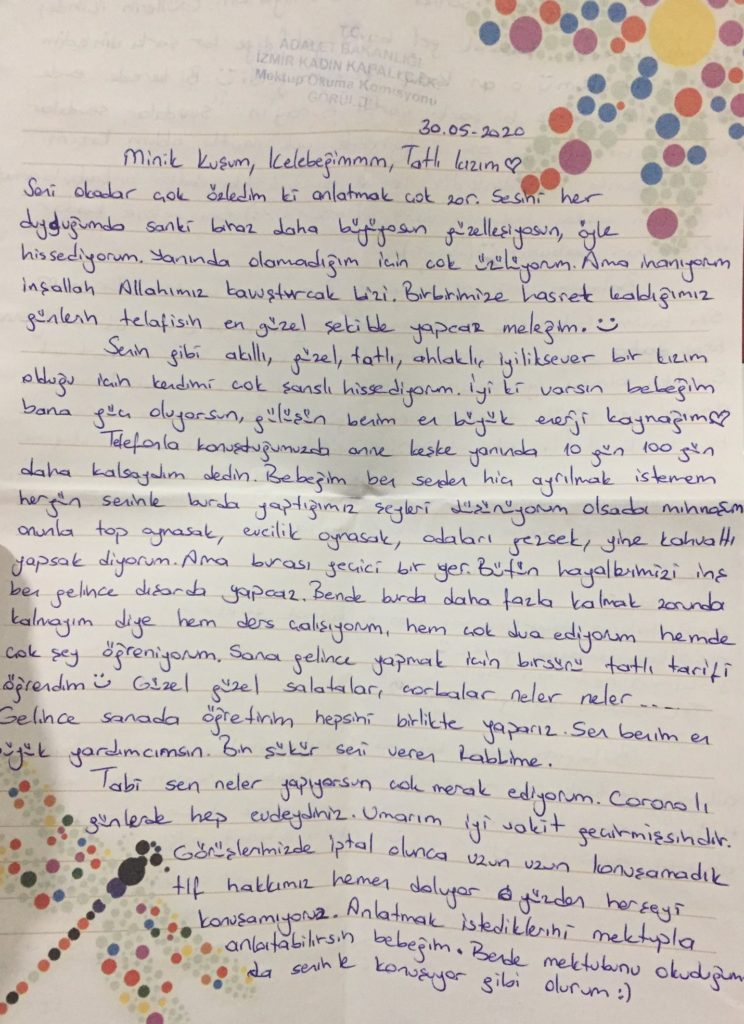 T.C.
ADALET BAKANLIĞI
İZMİR KADIN KAPALI CEK
Mektup Okuma Komisyonu
GÖRÜLDÜ
30.05-2020
Minik Kuşum, Kelebeğimmm, Tatlı kızım♡
Seni okadar çok özledim ki anlatmak çok zor. Sesini her
duyduğumda sanki biraz daha büyüyosun güzelleşiyosun, öyle
hissediyorum. Yanında olamadığım için çok üzülüyorum. Ama inanıyorum
inşallah Allahımız kavuşturcak bizi. Birbirimize hasret kaldığımız
günlerin telafisin en güzel şekilde yapcaz meleğim. :)
Senin gibi akıllı, güzel, tatlı, ahlaklı, iyiliksever bir kızım
olduğu için kendimi çok şanslı hissediyorum. İyi ki varsın bebeğim
bana güç oluyorsun, gülüşün benim en büyük enerji kaynağım♡
Telefonla konuştuğumuzda anne keşke yanında 10 gün 100 gün
daha kalsaydım dedin. Bebeğim ben senden hiç ayrılmak istemem
hergün seninle burda yaptığımız şeyleri düşünüyorum olsada mınnağım
onunla top oynasak, evcilik oynasak, odaları gezsek, yine kahvaltı
yapsak diyorum. Ama burası geçici bir yer. Bütün hayallerimizi inş
ben gelince dışarda yapcaz. Bende burda daha fazla kalmak zorunda
kalmayım diye hem ders çalışıyorum, hem çok dua ediyorum hemde
çok şey öğreniyorum. Sana gelince yapmak için birsürü tatlı tarifi
öğrendim :) Güzel güzel salatalar, çorbalar neler neler.....
Gelince sanada öğretirim hepsini birlikte yaparız. Sen benim en
büyük yardımcımsın. Bin şükür seni veren Rabbime.
Tabi sen neler yapıyorsun çok merak ediyorum. Coronalı
günlerde hep evdeydiniz. Umarım iyi vakit geçirmişsindir.
Görüşlerimizde iptal olunca uzun uzun konuşamadık
tlf hakkımız hemen doluyor o yüzden herşeyi
konuşamıyoruz. Anlatmak istediklerini mektupla
anlatabilirsin bebeğim. Bende mektubunu okuduğum
da seninle konuşuyor gibi olurum :)